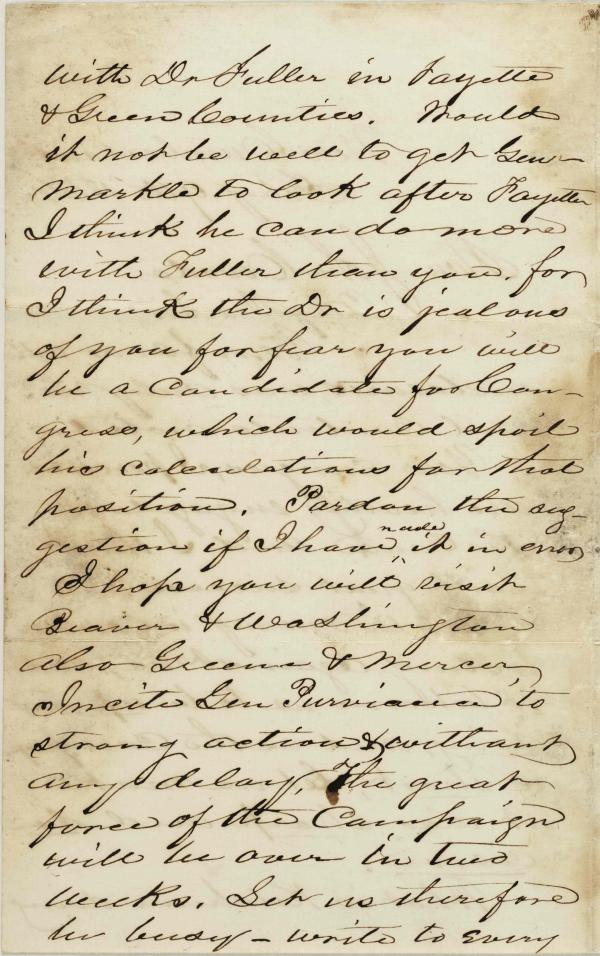 with Dr Fuller in Fayette
& Green Counties. Would
it not be well to get Gen-
Markle to look after Fayette
I think he can do more
with Fuller than you. for
I think the Dr is jealous
of you for fear you will
be a Candidate for Con-
gress, which would spoil
his calculations for that
position. Pardon the sug-
gestion if I have made it in error
I hope you will visit
Beaver & Washington
also Greene & Mercer,
Incite Gen Purviance to
strong action & without
any delay, The great
force of the Campaign
will be over in two
weeks. Let us therefore
be busy - write to every